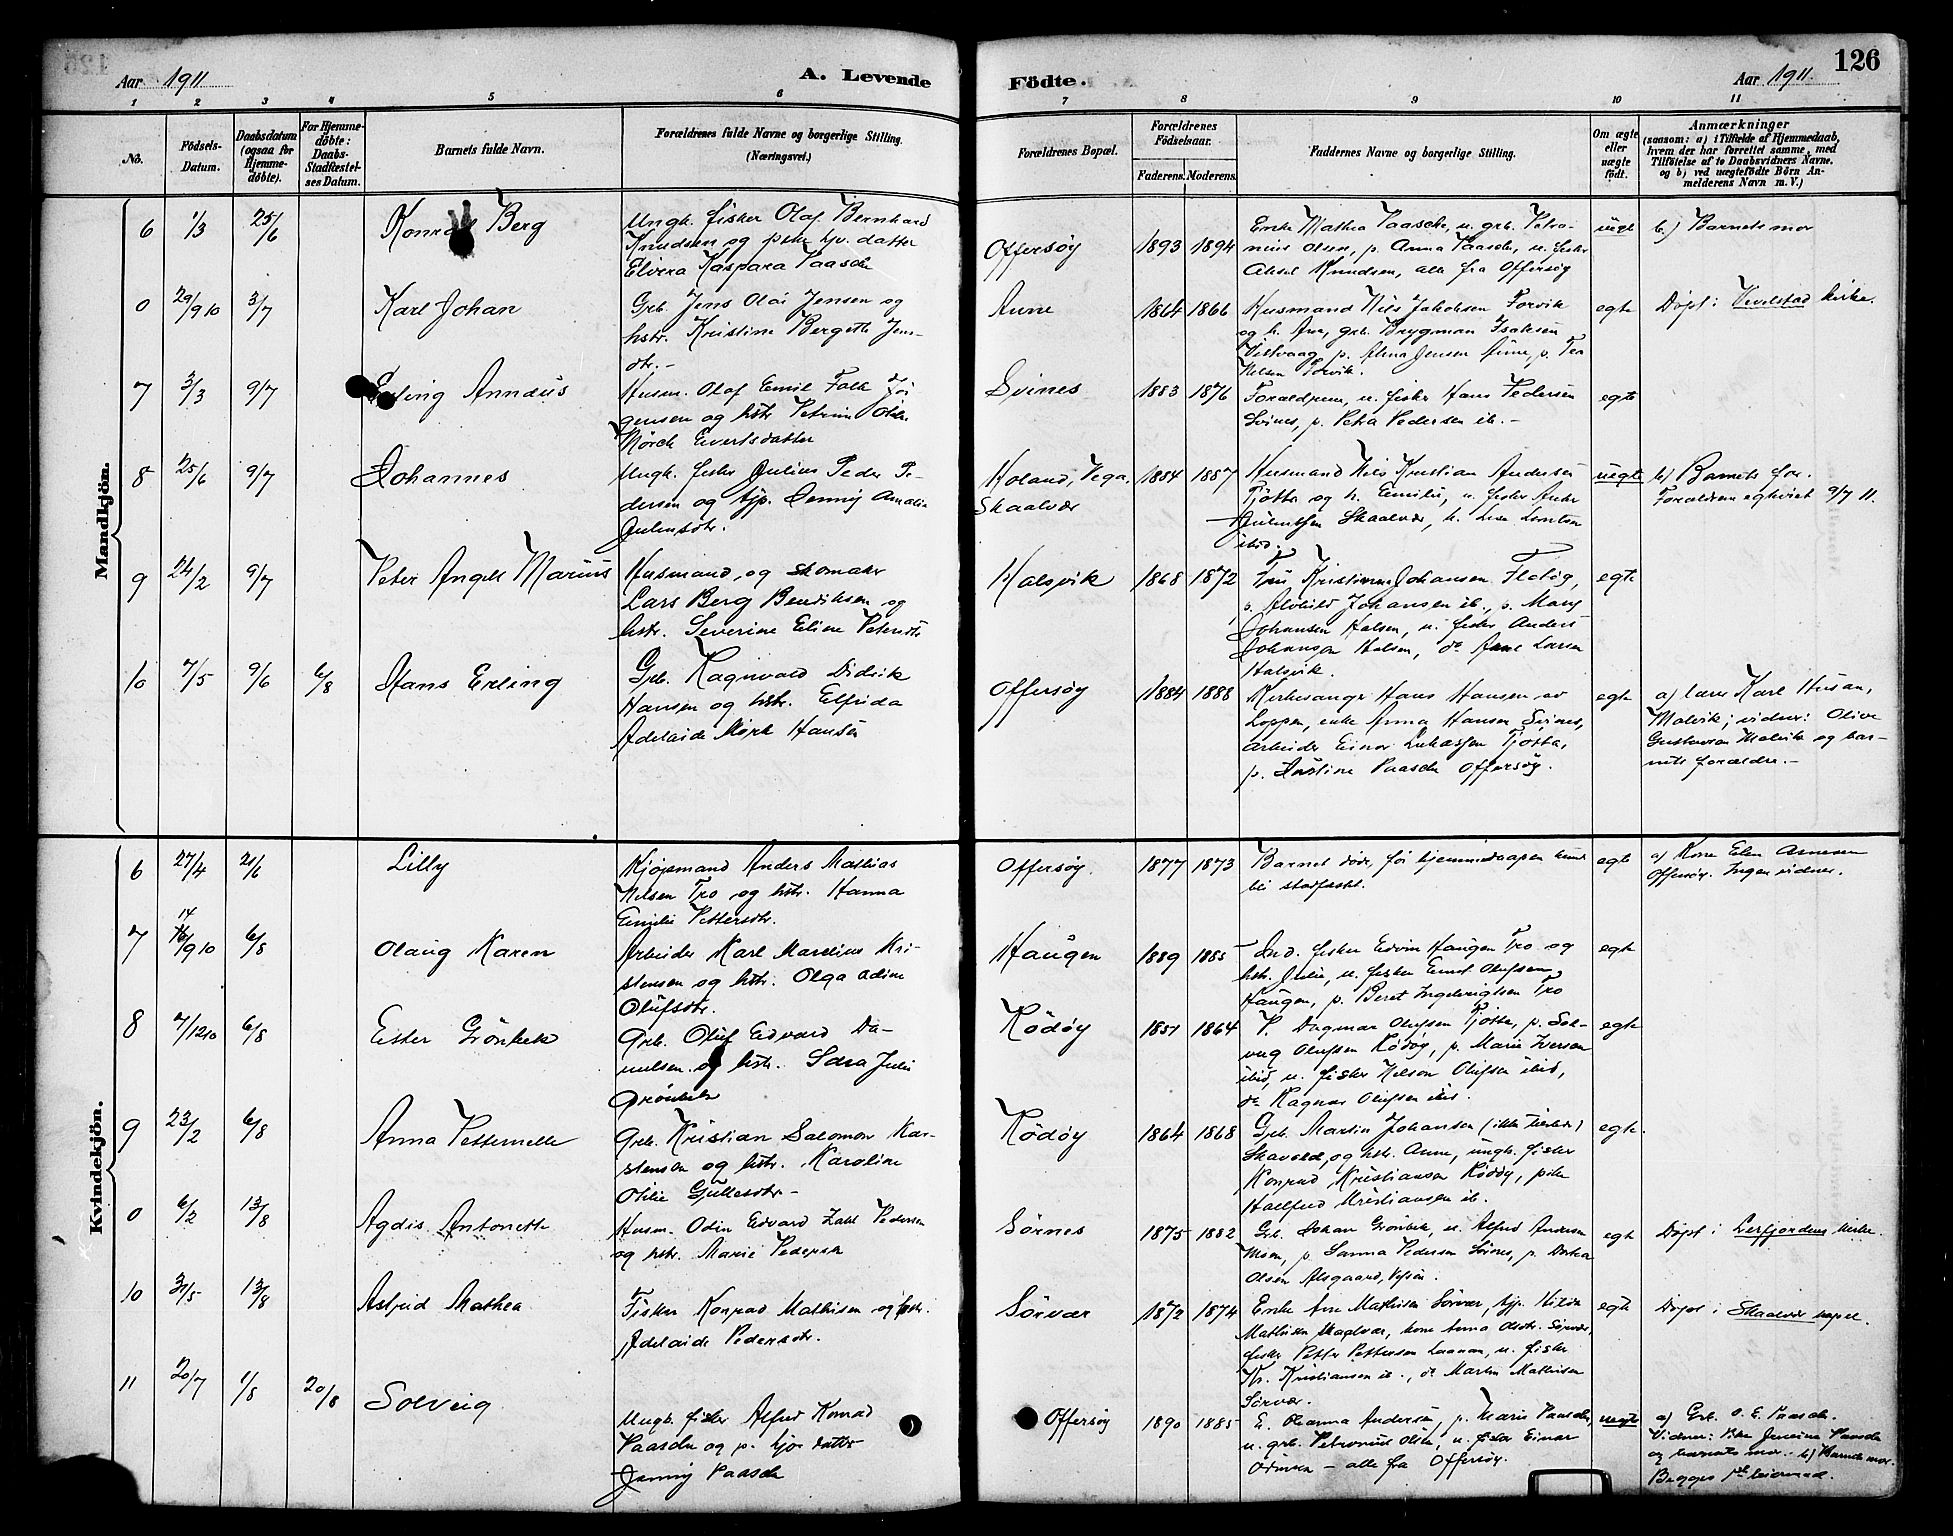 126
Aar 1911
A. Levende
Födte.
Aar 1911.
1 2 3 4 5 6 7 8 9 10 11
No.
Födsels-Datum.
Daabsdatum (ogsaa for Hjemme-döbte).
For Hjemme-döbte: Daabs-Stadfæstel-ses Datum.
Barnets fulde Navn.
Forældrenes fulde Navne og borgerlige Stilling.
(Næringsvei.)
Forældrenes Bopæl.
Forældrenes Födselsaar.
Faderens. Moderens.
Faddernes Navne og borgerlige Stilling.
Om ægte eller uægte födt.
Anmærkninger
(saasom: a) i Tilfælde af Hjemmedaab, hvem der har forrettet samme, med Tilföielse af to Daabsvidners Navne, og b) ved uægtefödte Börn An-melderens Navn m. V.)
Mandkjön.
6 1/3 25/6 Konrad Berg
Ungk. fisker Olaf Bernhard
Knudsen og pike hjv. datter
Elvira Kaspara Paasche
Offersøy 1893 1894
Enke Mathea Paasche, u. grb. Petro-
nius Olsen, p. Anna Paasche, u. fisker
Aksel Knudsen, alle fra Offersøy
uegte
b.) Barnets mor
0 29/9 10 3/7 Karl Johan
Grb. Jens Olai Jensen og
hstr. Kristine Bergette Jens-
dtr.-
Aune 1864 1866
Husmand Nils Jakobsen Forvik
og h. Ane, grb. Brygman Isaksen
Vistvaag, p. Alma Jensen Aune, p. Tea
Nelsen Forvik.
egte
Døpt i Vevelstad kirke.
7 3/3 9/7 Erling Annæus
Husm. Olaf Emil Falk Jør
gensen og hstr Petrine Olsen
Mörch Evertsdatter
Svines 1883 1876
Forældrene, u. fisker Hans Pedersen
Svines, p. Petra Pedersen ib. -
egte
8 25/6 9/7 Johannes
Ungk. fisker Julius Peder Pe-
dersen og tjp. Jenny Amalie
Julinsdtr.
Holand, Vega,
Skaalvær
1884 1887
Husmand Nils Kristian Andersen
Tjøtta og h. Emilie, u. fisker
Skaalvær, h.
ibid.
uegte
b) Barnets far.
Forældrene egteviet 9/7 11.
9 24/2 9/7 Peter Angell Marius
Husmand, og skomaker
Lars Berg Bendiksen og
hstr. Severine Eline Petersdtr
Halsvik 1868 1872
Johansen Flotøy,
p. Alvhild Johansen ib., p. Mary
Johansen Halsen, u. fisker Anders
Johansen Halsen, do Arne Larsen
Halsvik.
egte
10 7/5 9/6 6/8 Hans Erling
Grb. Ragnvald Didrik
Hansen og hstr. Elfrida
Adelaide Mørk Hansen
Offersøy 1884 1888
Kirkesanger Hans Hansen av
Loppen, enke Anna Hansen Svines,
arbeider Einar Lukassen Tjøtta,
p. Kristine Paasche Offersøy.
egte
a) lærer Karl Husan,
Malvik; vidner: Olive
Gustavson Malvik og bar-
nets forældre. -
Kvindekjön.
6 27/4 21/6 Lilly
Kjøpmand Anders Mathias
Nelsen Tro og hstr. Hanna
Emilie Pettersdtr.
Offersøy. 1877 1873
Barnet døde, før hjemmedaapen kunde
bli stadfæstet.
egte
a) Kone Elen Arnesen
Offersøy. Ingen vidner.
7 14/9 10 6/8 Olaug Karen
Arbeider Karl Marelius Kri-
stensen og hstr. Olga Adine
Olufsdtr.
Haugen 1889 1885
Ind. fisker Edvin Haugen Tro og
hstr. Julie, u. fisker Ernst Olufsen
Haugen, p. Beret Ingebrigtsen Tro
egte
8 7/12 10 6/8 Ester Grönbek
Grb. Oluf Edvard Da-
nielsen og hstr. Sara Julie
Grönbek
Rödöy 1851 1864
P. Dagmar Olufsen Tjøtta, p. Sol-
veig Olufsen Rödöy, p. Marie Iversen
ibid, u. fisker Nelson Olufsen ibid,
do Ragnar Olufsen ibid.
egte
9 23/2 6/8 Anna Petternelle
Grb. Kristian Salomon Kar-
stensen og hstr. Karoline
Otilie Gullesdtr. -
Rödöy 1864 1868
Grb. Martin Johansen (ikke tilstede)
Skavold, og hstr. Anne, ungk. fisker
Konrad Kristiansen Rödöy, pike
Halfrid Kristiansen ib.
egte
0 6/2 13/8 Agdis Antonette
Husm. Odin Edvard Zahl Pedersen
og hstr. Marie Pedersen
Sörnes 1875 1882
Grb. Johan Grönbek, u. Alfred Andersen
p. Sanna Pedersen Svines, p. Dorthea
Olsen Alsgaard, Vefsn.
egte
Døpt i Leirfjordens kirke.
10 31/5 13/8 Astrid Mathea
Fisker Konrad Mathisen og hstr.
Adelaide Pedersdtr.
Sörvær 1872 1874
Enke Ane Mathisen Sörvær, tjp. Hilda
Mathisen Skaalvær, kone Anna Olsdtr. Sörvær,
fisker Petter Pettersen Laanan, u. fisker
Kr. Kristiansen ib., do Martin Mathisen
Sörvær.
egte
Døpt i Skaalvær kapel.
11 20/7 1/8 20/8 Solveig
Ungk. fisker Alfred Konrad
Paasche og p. hjv. datter
Jenny Paasche
Offersøy 1890 1885
E. Olianna Andersen, p. Marie Paasche,
u. grb. Petronius Olsen, u. fisker Einar
Odinsen - alle fra Offersøy.
uegte
a) Grb. O. E. Paasche.
Vidner: Paasche
og barnets mor. - b) Barnets mor.
Begges 1ste leiermaal.